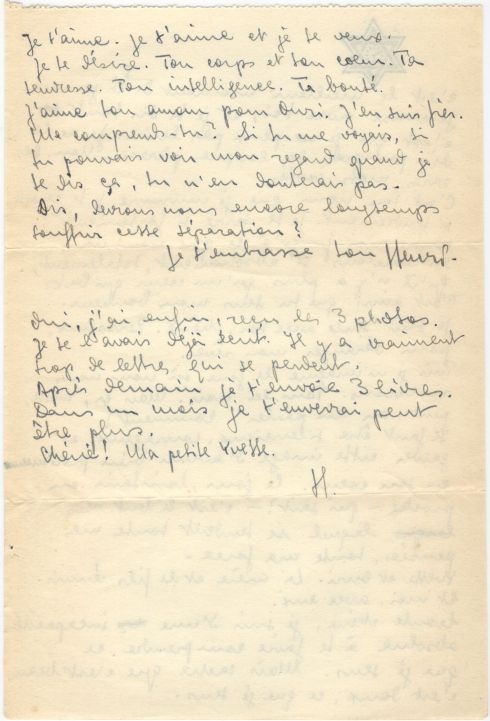 Je t'aime. Je t'aime et je te veux.
Je te désire. Ton corps et ton coeur. Ta
tendresse. Ton intelligence. Ta bonté.
J'aime ton amour pour Ouri. J'en suis fier.
Me comprends-tu? Si tu me voyais, si
tu pouvais voir mon regard quand je
te dis ça, tu n'en douterais pas.
Dis, devrons nous encore longtemps
souffrir cette séparation?
Je t'embrasse ton Henri.
Oui, j'ai enfin, reçu les 3 photos.
Je te l'avais déjà écrit. Il y a vraiment
trop de lettres qui se perdent.
Après demain je t'envoie 3 livres.
Dans un mois je t'enverrai peut
être plus.
Chérie! Ma petite Yvette.
H.